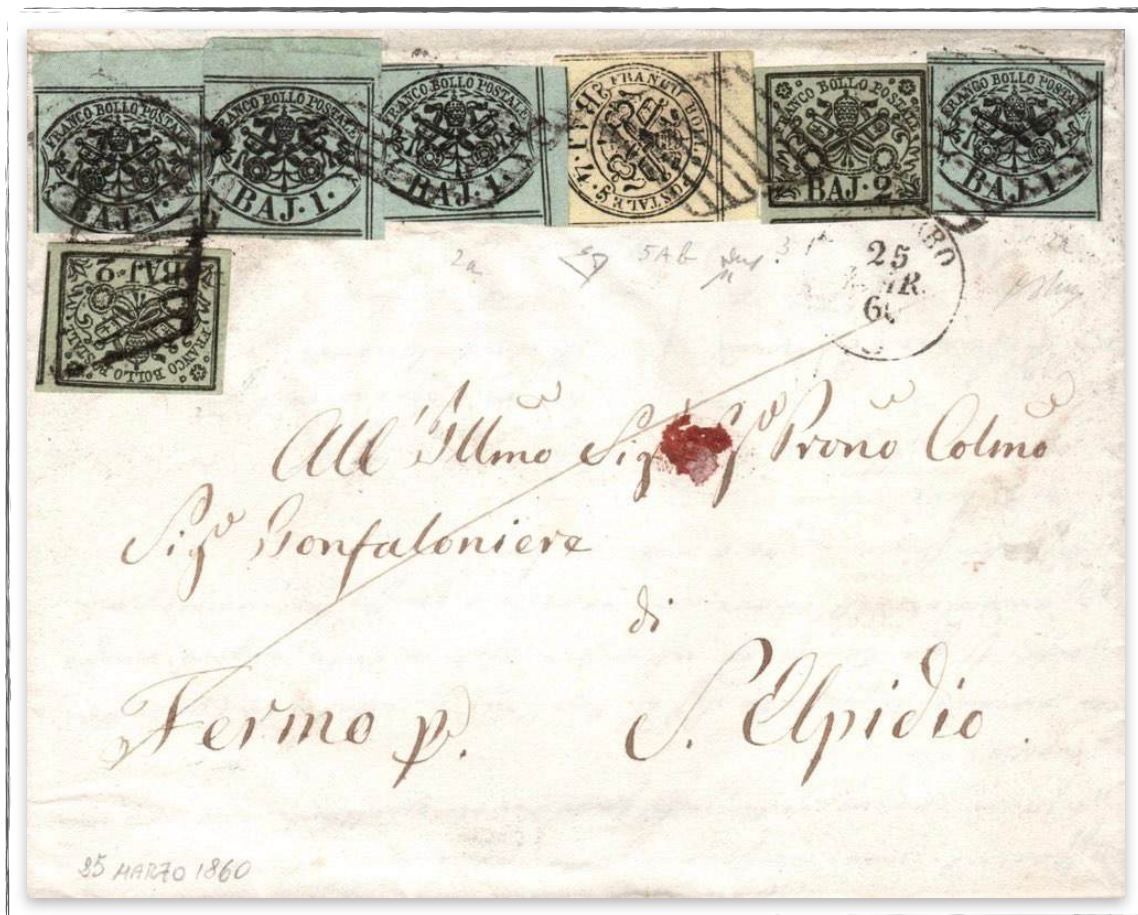 FRANCO BOLLO POSTALE
BAJ. 1.
FRANCO BOLLO POSTALE
BAJ. 1.
FRANCO BOLLO POSTALE
BAJ. 1.
FRANCO BOLLO POSTALE
BAJ. 4.
FRANCO BOLLO POSTALE
BAJ. 2
FRANCO BOLLO POSTALE
BAJ. 1.
FRANCO BOLLO POSTALE
BAJ. 2
2a
5Ab
25
60
2a
All' Illmo Sigr Prono Colmo
Sigr Gonfaloniere
di
Fermo p. S. Elpidio.
25 MARZO 1860